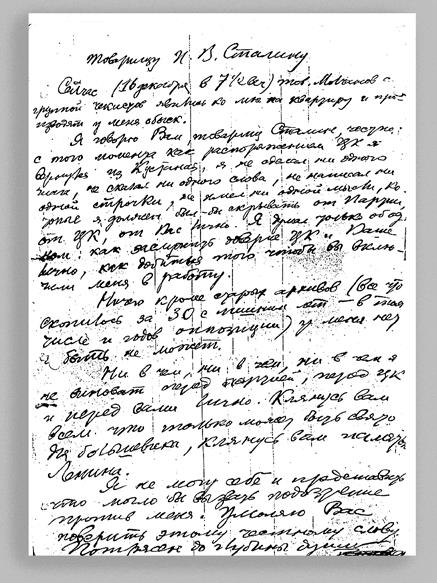 Товарищу И. В. Сталину
Сейчас (16 декабря в 7½ веч) тов. Молчанов с
группой чекистов явились ко мне на квартиру и про-
изводят у меня обыск.
Я говорю Вам товарищ Сталин, честно:
с того момента как распоряжением ЦК я
вернулся из Кустаная, я не сделал ни одного
шага, не сказал ни одного слова, не написал ни
одной строчки, не имел ни одной мысли, ко-
торые я должен был бы скрывать от Партии,
от ЦК, от Вас лично. Я думал только об од-
ном: как оправдать доверие ЦК и Ваше
лично, как добиться того чтобы вы вклю-
чили меня в работу.
Ничего кроме старых архивов (все что
скопилось за 30 с лишним лет — в том
числе и годов оппозиции) у меня нет
и быть не может.
Ни в чем, ни в чем, ни в чем я
не виноват перед партией, перед ЦК
и перед вами лично. Клянусь вам
всем. что только может быть свято
для большевика, клянусь вам памятью
Ленина.
Я не могу себе и представить
что могло бы вызвать подозрение
против меня. Умоляю Вас
поверить этому честному слову.
Потрясен до глубины души